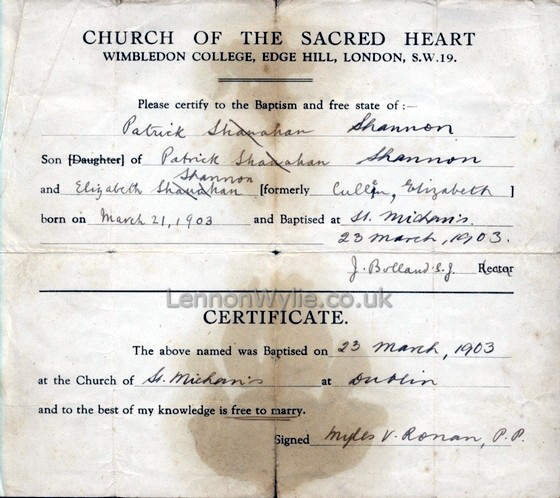 CHURCH OF THE SACRED HEART
WIMBLEDON COLLEGE, EDGE HILL, LONDON, S.W.19.
Please certify to the Baptism and free state of :—
Patrick Shanahan Shannon
Son [Daughter] of Patrick Shanahan Shannon
Shannon
and Elizabeth Shanahan [formerly Cullen, Elizabeth ]
born on March 21, 1903 and Baptised at St. Michan's
23 March, 1903.
J. Bolland S.J. Rector
LennonWylie.co.uk
CERTIFICATE.
The above named was Baptised on 23 March, 1903
at the Church of St. Michan's at Dublin
and to the best of my knowledge is free to marry.
Signed Myles V. Ronan, P.P.